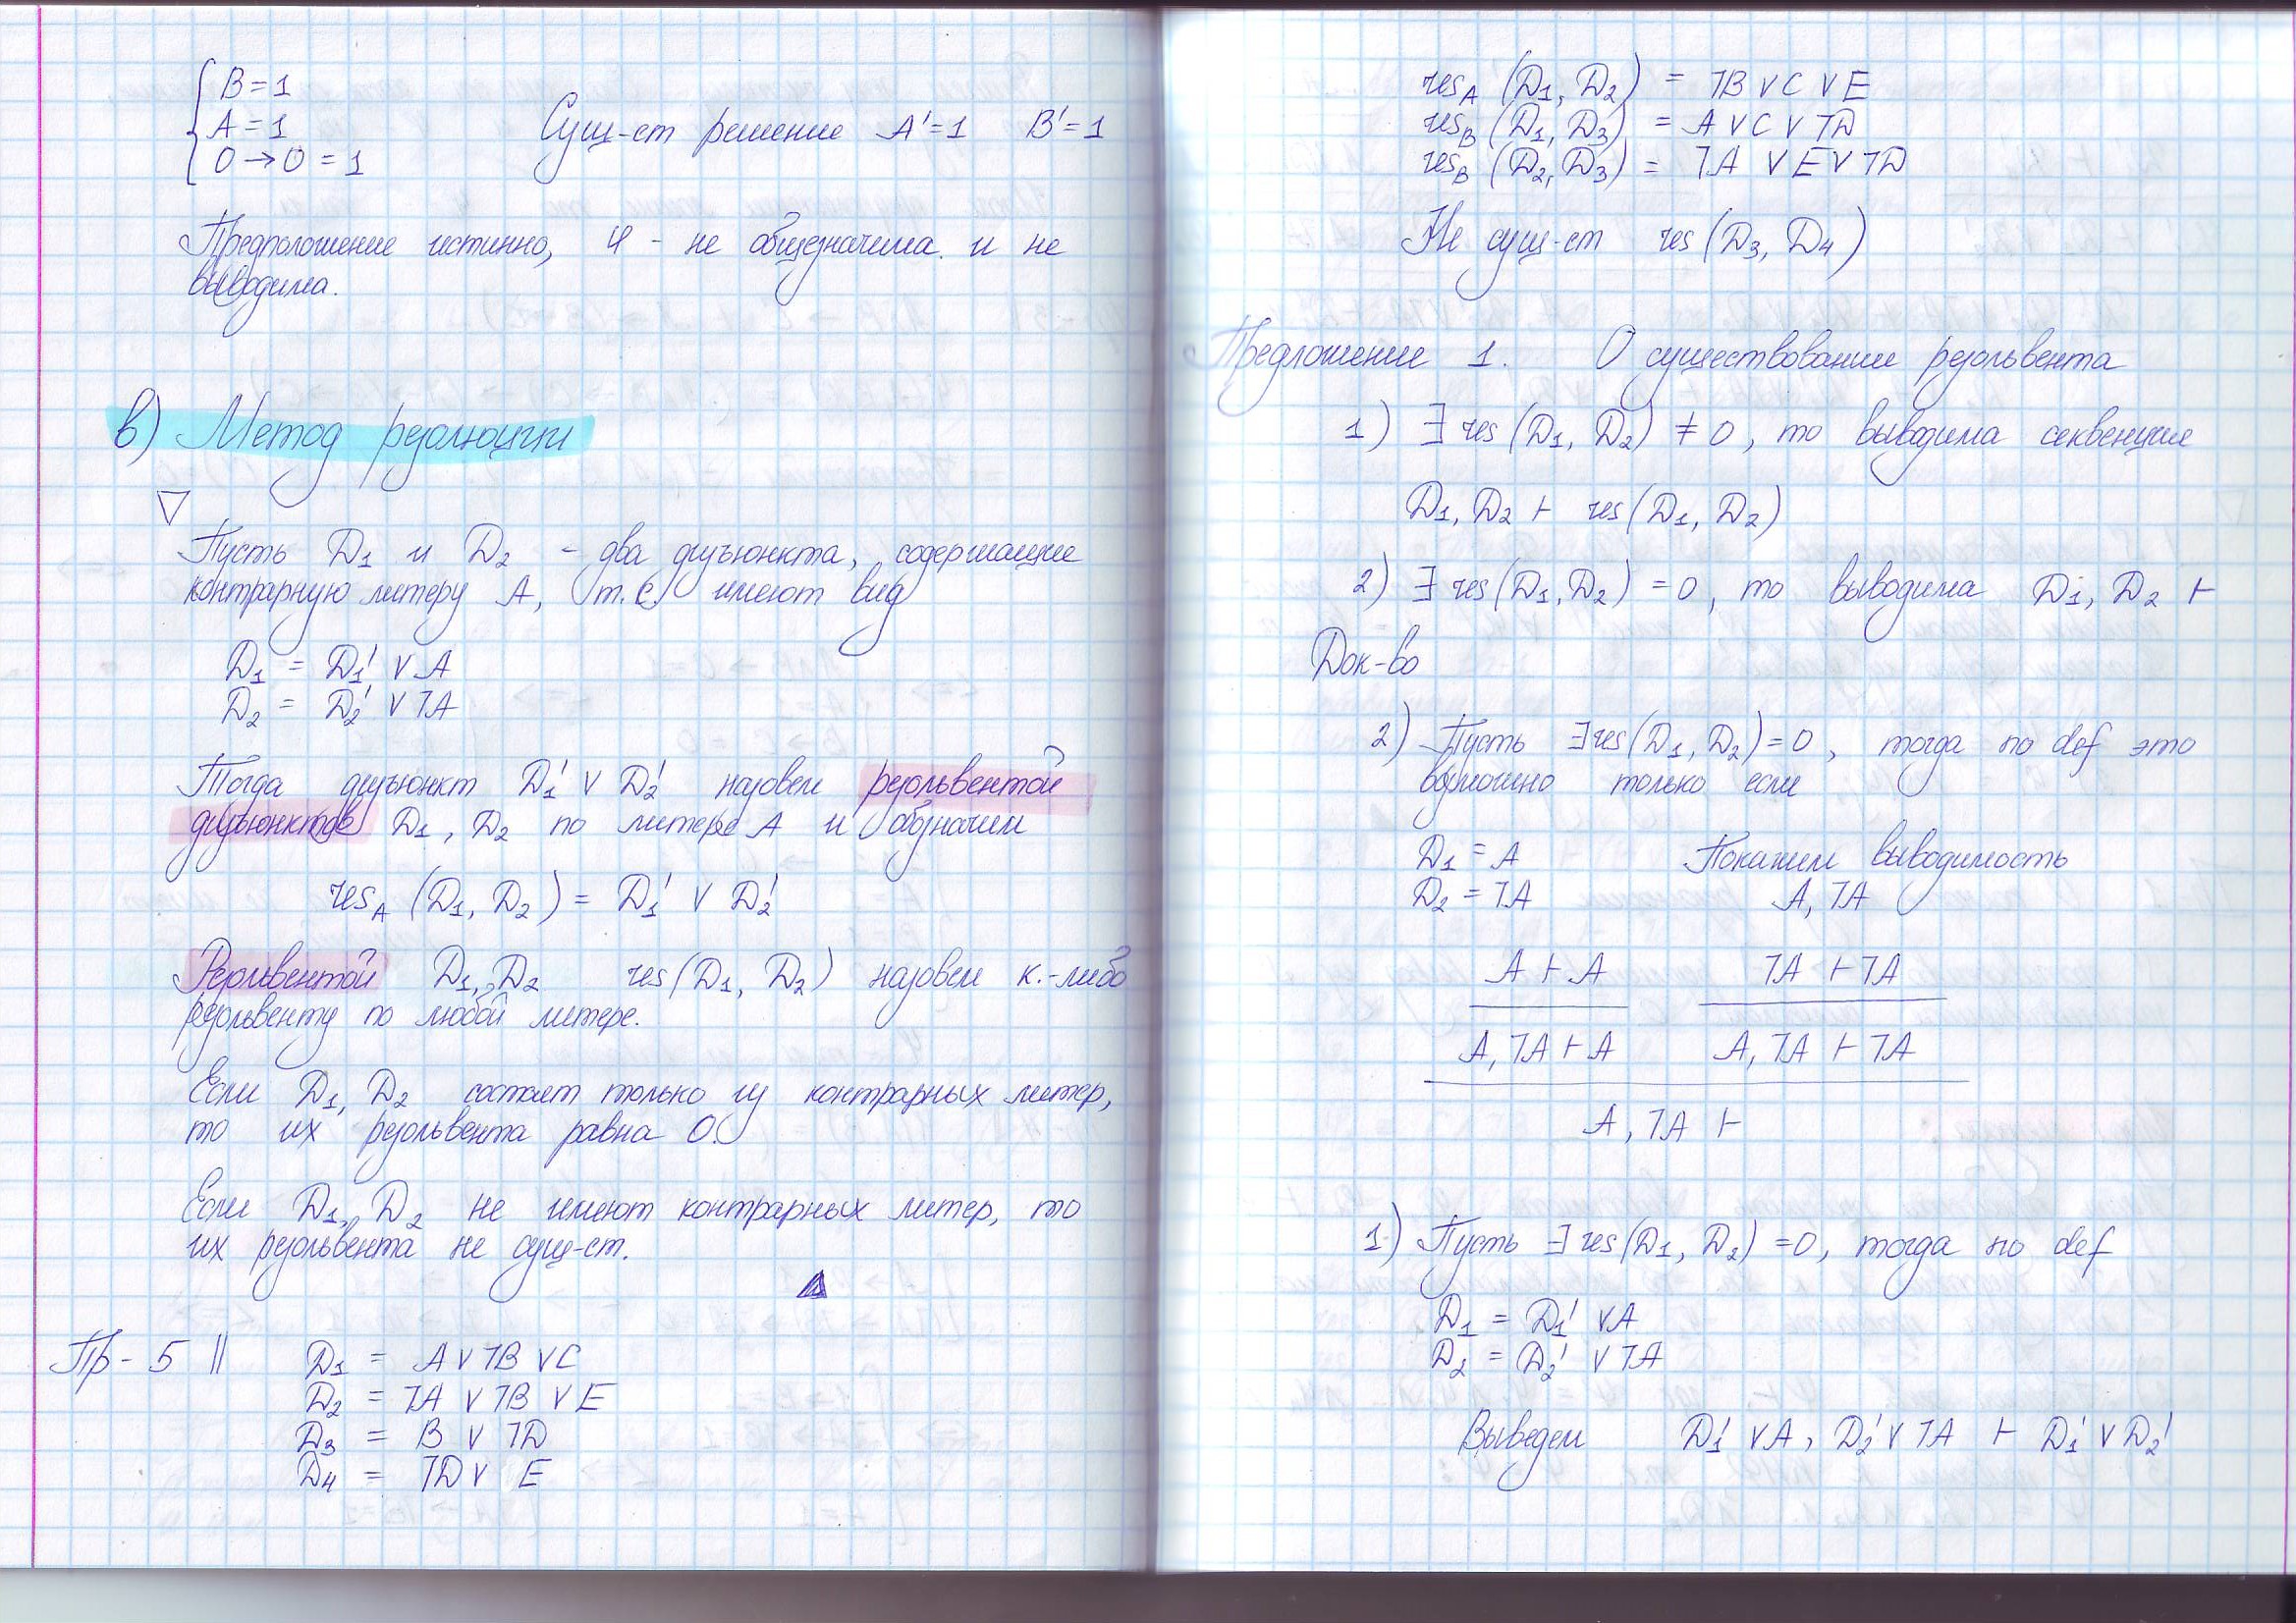 B = 1
A = 1
0 → 0 = 1
Сущ-ет решение A' = 1 B' = 1
Предположение истинно, φ - не общезначима. и не
выводима.
в) Метод резолюции
▽
Пусть D₁ и D₂ - два дизъюнкта, содержащие
контрарную литеру A, т.е. имеют вид
D₁ = D₁' ∨ A
D₂ = D₂' ∨ ¬A
Тогда дизъюнкт D₁' ∨ D₂' назовем резольвентой
дизъюнктов D₁, D₂ по литере A и обозначим
res_A (D₁, D₂) = D₁' ∨ D₂'
Резольвентой D₁, D₂ res(D₁, D₂) назовем к.-либо
резольвенту по любой литере.
Если D₁, D₂ состоят только из контрарных литер,
то их резольвента равна 0.
Если D₁, D₂ не имеют контрарных литер, то
их резольвента не сущ-ет.
Пр - 5 ||
D₁ = A ∨ ¬B ∨ C
D₂ = ¬A ∨ ¬B ∨ E
D₃ = B ∨ ¬D
D₄ = ¬D ∨ E
res_A (D₁, D₂) = ¬B ∨ C ∨ E
res_B (D₁, D₃) = A ∨ C ∨ ¬D
res_B (D₂, D₃) = ¬A ∨ E ∨ ¬D
Не сущ-ет res (D₃, D₄)
Предложение 1. О существовании резольвента
1) ∃ res (D₁, D₂) ≠ 0, то выводима секвенция
D₁, D₂ ⊢ res (D₁, D₂)
2) ∃ res (D₁, D₂) = 0, то выводима D₁, D₂ ⊢
Док-во
2) Пусть ∃ res (D₁, D₂) = 0, тогда по def это
возможно только если
D₁ = A Покажем выводимость
D₂ = ¬A A, ¬A
A ⊢ A ¬A ⊢ ¬A
A, ¬A ⊢ A A, ¬A ⊢ ¬A
A, ¬A ⊢
1) Пусть ∃ res (D₁, D₂) = 0, тогда по def
D₁ = D₁' ∨ A
D₂ = D₂' ∨ ¬A
Выведем D₁' ∨ A, D₂' ∨ ¬A ⊢ D₁' ∨ D₂'